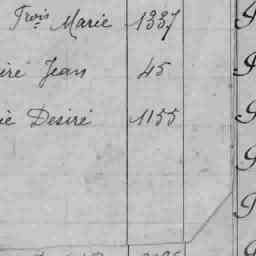 Frois Marie 1337
iré Jean 45
ie Desiré 1155